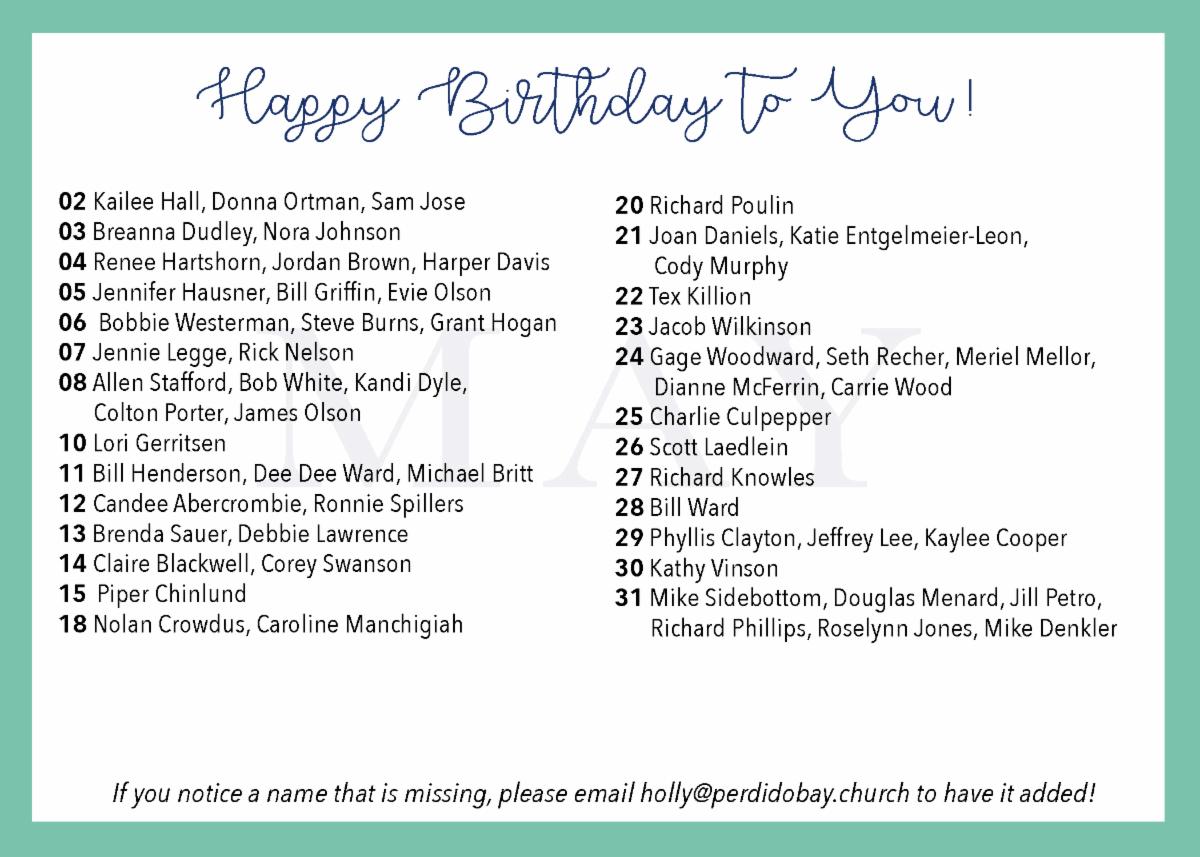 Happy Birthday to You!
MAY
02 Kailee Hall, Donna Ortman, Sam Jose
03 Breanna Dudley, Nora Johnson
04 Renee Hartshorn, Jordan Brown, Harper Davis
05 Jennifer Hausner, Bill Griffin, Evie Olson
06 Bobbie Westerman, Steve Burns, Grant Hogan
07 Jennie Legge, Rick Nelson
08 Allen Stafford, Bob White, Kandi Dyle,
Colton Porter, James Olson
10 Lori Gerritsen
11 Bill Henderson, Dee Dee Ward, Michael Britt
12 Candee Abercrombie, Ronnie Spillers
13 Brenda Sauer, Debbie Lawrence
14 Claire Blackwell, Corey Swanson
15 Piper Chinlund
18 Nolan Crowdus, Caroline Manchigiah
20 Richard Poulin
21 Joan Daniels, Katie Entgelmeier-Leon,
Cody Murphy
22 Tex Killion
23 Jacob Wilkinson
24 Gage Woodward, Seth Recher, Meriel Mellor,
Dianne McFerrin, Carrie Wood
25 Charlie Culpepper
26 Scott Laedlein
27 Richard Knowles
28 Bill Ward
29 Phyllis Clayton, Jeffrey Lee, Kaylee Cooper
30 Kathy Vinson
31 Mike Sidebottom, Douglas Menard, Jill Petro,
Richard Phillips, Roselynn Jones, Mike Denkler
If you notice a name that is missing, please email holly@perdidobay.church to have it added!